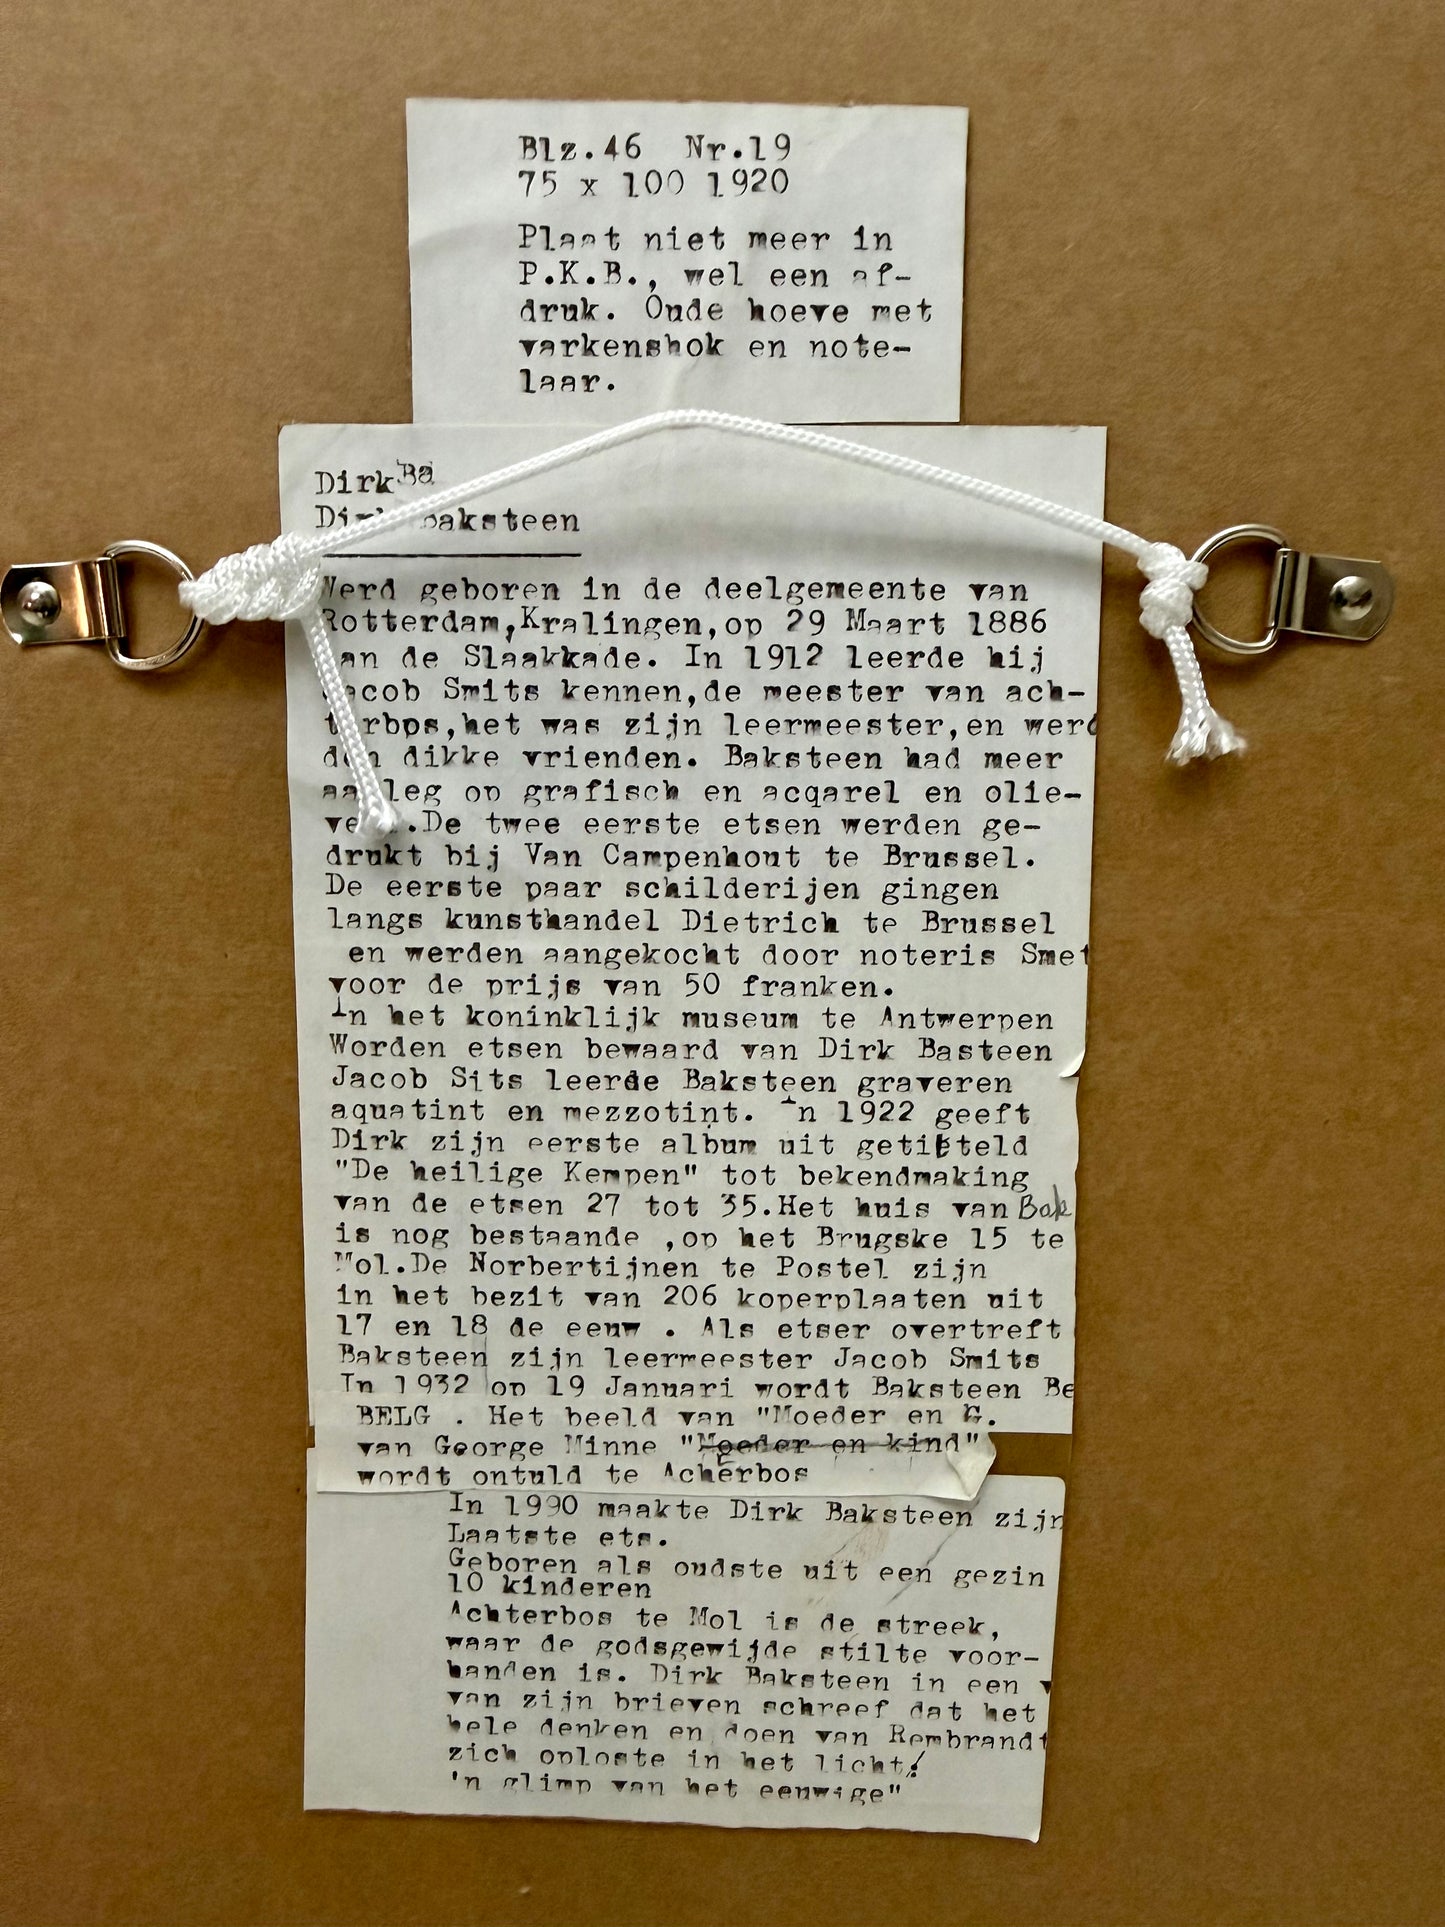 Blz.46 Nr.19
75 x 100 1920
Plaat niet meer in
P.K.B., wel een af-
druk. Oude hoeve met
varkenshok en note-
laar.
Dirk Ba
Dirk Baksteen
Werd geboren in de deelgemeente van
Rotterdam,Kralingen,op 29 Maart 1886
an de Slaakkade. In 1912 leerde hij
Jacob Smits kennen,de meester van ach-
terbos,het was zijn leermeester,en werd
den dikke vrienden. Baksteen had meer
aanleg op grafisch en acqarel en olie-
verf.De twee eerste etsen werden ge-
drukt bij Van Campenhout te Brussel.
De eerste paar schilderijen gingen
langs kunsthandel Dietrich te Brussel
en werden aangekocht door noteris Smet
voor de prijs van 50 franken.
In het koninklijk museum te Antwerpen
Worden etsen bewaard van Dirk Basteen
Jacob Sits leerde Baksteen graveren
aquatint en mezzotint. In 1922 geeft
Dirk zijn eerste album uit getiteld
"De heilige Kempen" tot bekendmaking
van de etsen 27 tot 35.Het huis van Bak
is nog bestaande ,op het Brugske 15 te
Mol.De Norbertijnen te Postel zijn
in het bezit van 206 koperplaaten uit
17 en 18 de eeuw . Als etser overtreft
Baksteen zijn leermeester Jacob Smits
In 1932 op 19 Januari wordt Baksteen Be
BELG . Het beeld van "Moeder en G.
van George Minne "Moeder en kind"
wordt ontuld te Acherbos
In 1990 maakte Dirk Baksteen zijn
Laatste ets.
Geboren als oudste uit een gezin
10 kinderen
Achterbos te Mol is de streek,
waar de godsgewijde stilte voor-
handen is. Dirk Baksteen in een v
van zijn brieven schreef dat het
hele denken en doen van Rembrandt
zich oploste in het licht!
'n glimp van het eeuwige"